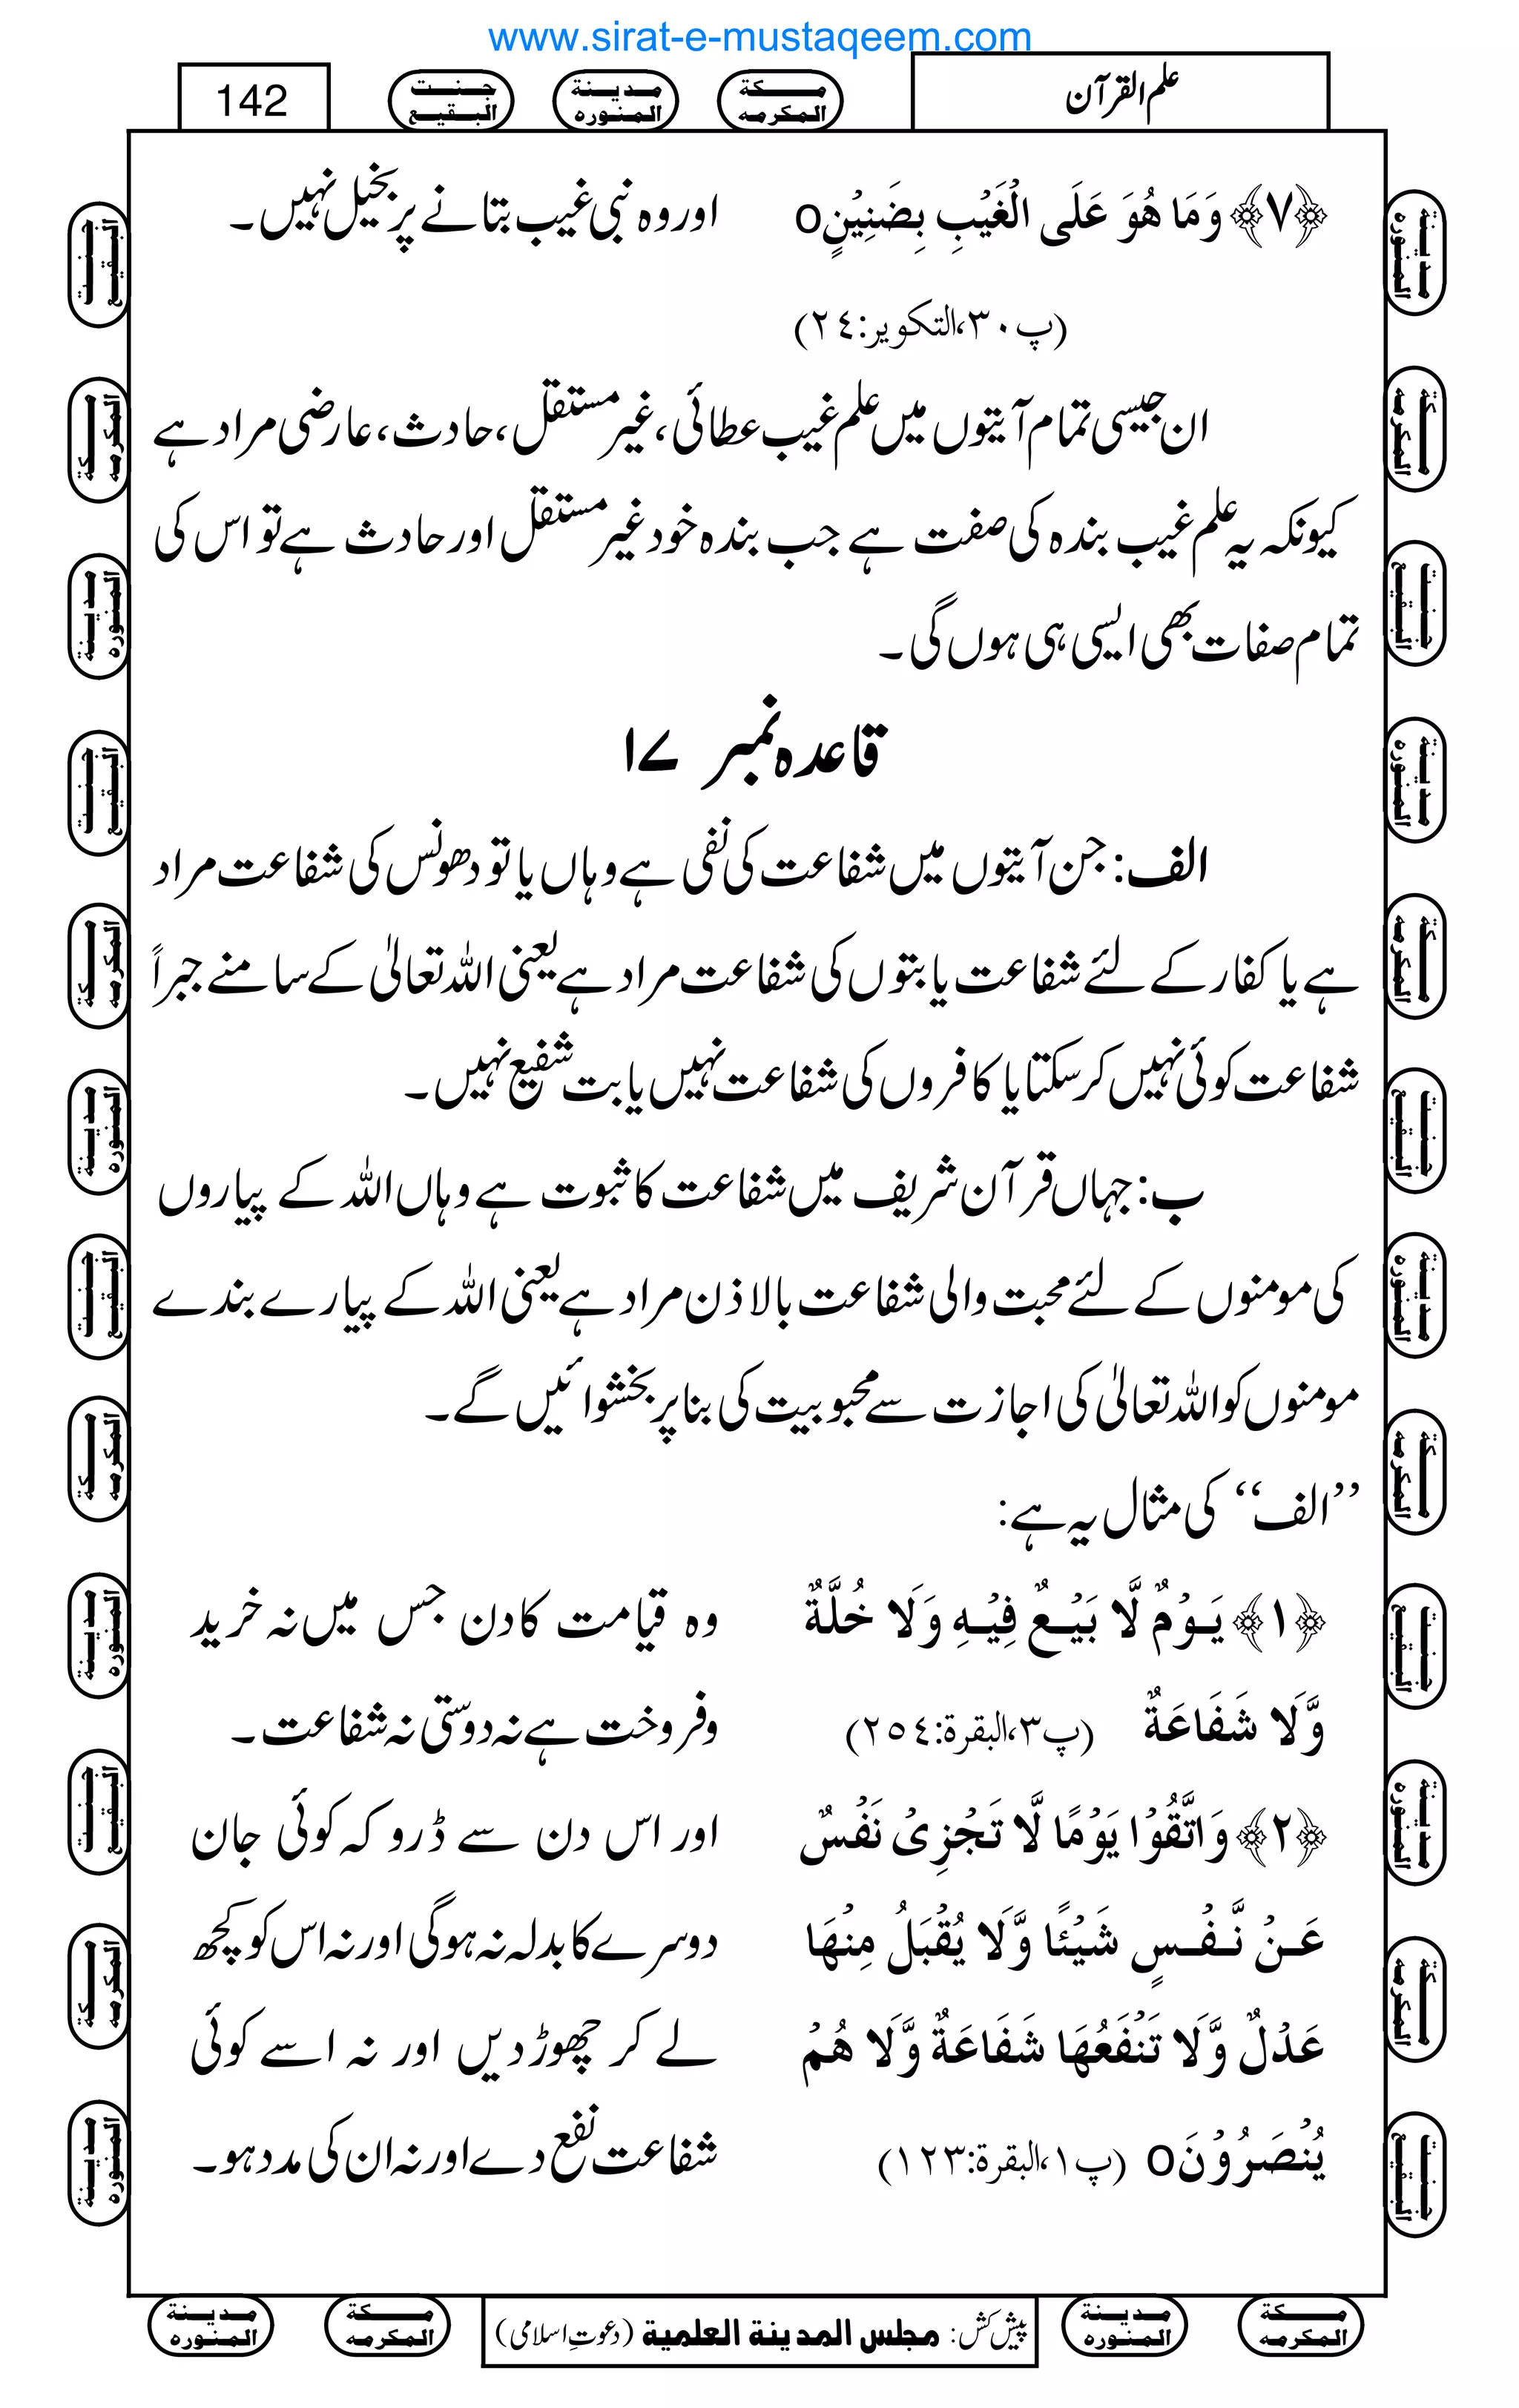 www.sirat-e-mustaqeem.com
علم القرآن
مكة المكرمه
مدينة المنوره
جنت البقيع
142
﴿٧﴾ وَمَا هُوَ عَلَى الْغَيْبِ بِضَنِيْنٍo اور وہ نبی غیب بتانے پر بخیل نہیں۔
(پ٣٠،التکویر:٢٤)
ان جیسی تمام آیتوں میں علم غیب عطائی، غیر مستقل، حادث، عارضی مراد ہے
کیونکہ یہ علم غیب بندہ کی صفت ہے جب بندہ خود غیر مستقل اور حادث ہے تو اس کی
تمام صفات بھی ایسی ہی ہوں گی۔
قاعدہ نمبر ۱۷
الف: جن آیتوں میں شفاعت کی نفی ہے وہاں یا تو دھونس کی شفاعت مراد
ہے یا کفار کے لئے شفاعت یا بتوں کی شفاعت مراد ہے یعنی اللہ تعالیٰ کے سامنے جبراً
شفاعت کوئی نہیں کرسکتا یا کافروں کی شفاعت نہیں یا بت شفیع نہیں۔
ب: جہاں قرآن شریف میں شفاعت کا ثبوت ہے وہاں اللہ کے پیاروں
کی مومنوں کے لئے محبت والی شفاعت بالاذن مراد ہے یعنی اللہ کے پیارے بندے
مومنوں کو اللہ تعالیٰ کی اجازت سے محبوبیت کی بنا پر بخشوائیں گے۔
’’الف‘‘ کی مثال یہ ہے:
﴿١﴾ يَوْمٌ لَّا بَيْعٌ فِيْهِ وَلَا خُلَّةٌ وہ قیامت کا دن جس میں نہ خرید
وَّلَا شَفَاعَةٌ (پ٣،البقرة:٢٥٤) وفروخت ہے نہ دوستی نہ شفاعت۔
﴿٢﴾ وَاتَّقُوْا يَوْمًا لَّا تَجْزِىْ نَفْسٌ اور اس دن سے ڈرو کہ کوئی جان
عَنْ نَّفْسٍ شَيْئًا وَّلَا يُقْبَلُ مِنْهَا دوسرے کا بدلہ نہ ہوگی اور نہ اس کو کچھ
عَدْلٌ وَّلَا تَنْفَعُهَا شَفَاعَةٌ وَّلَا هُمْ لے کر چھوڑدیں اور نہ اسے کوئی
يُنْصَرُوْنَo (پ١،البقرة:١٢٣) شفاعت نفع دے اور نہ ان کی مدد ہو۔
پیش کش: مجلس المدينة العلمية (دعوتِ اسلامی)